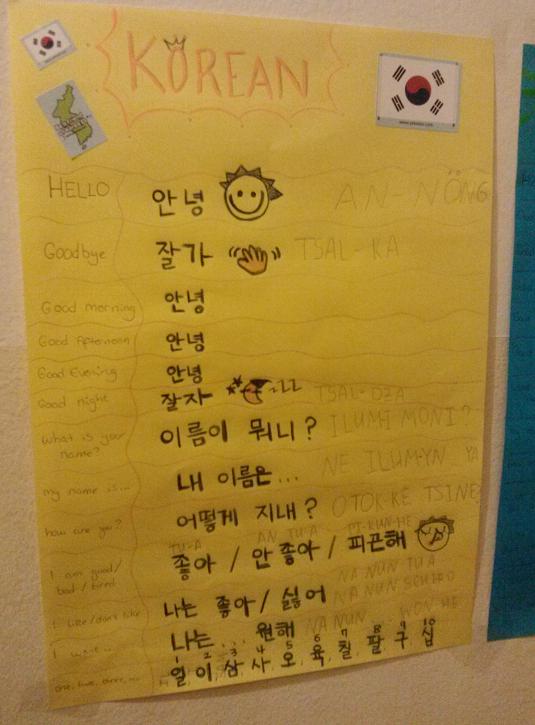 KOREAN
HELLO 안녕 AN NÖNG
Goodbye 잘가 TSAL-KA
Good morning 안녕
Good Afternoon 안녕
Good Evening 안녕
Good night 잘자 ZZ TSAL-DZA
What is your name? 이름이 뭐니? ILUMI MONI?
my name is... 내 이름은... NE ILUM-YN YA
how are you? 어떻게 지내? OTOK-KE TSINE?
TU-A AN TU-A PI-KUN-HE
I am good/ bad/tired 좋아 / 안 좋아 / 피곤해
I like/don't like 나는 좋아 / 싫어 NA NUN TU A
NA NUN
I want... 나는... 원해 NA NUN WON-HE
1 2 3 4 5 6 7 8 9 10
one, two, three, ... 일 이 삼 사 오 육 칠 팔 구 십